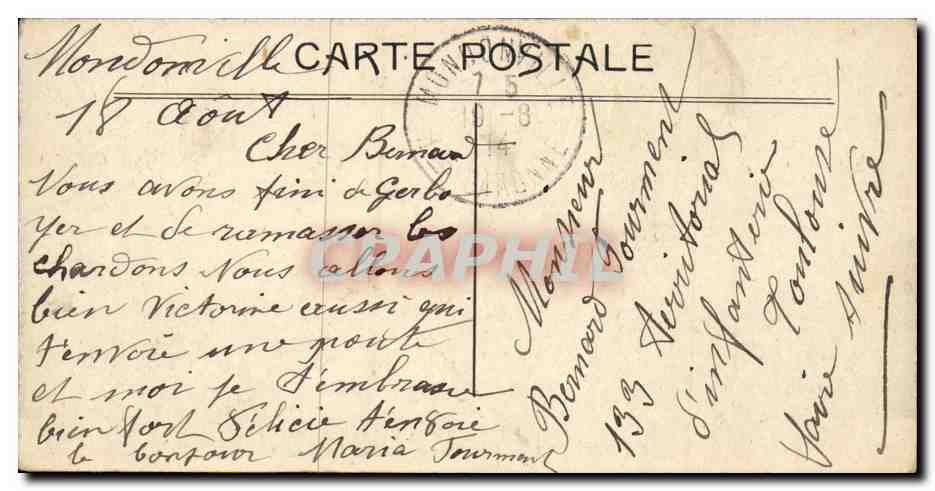 CARTE POSTALE
Mondonville
18 Août
Cher Bernard
Nous avons fini de Gerbo
yer et de ramasser les
chardons Nous allons
bien Victorine aussi qui
t'envoie une
et moi je t'embrasse
bien fort Félicie t'envoie
le bonjour Maria Tourment
Monsieur
Bernard Tourment
133 Territorial
d'infanterie
Toulouse
faire suivre
MONDONVILLE
7 5
19 -8
14
GARONNE
CRAPHIL